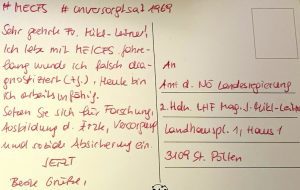 # MECFS # unversorgt seit 1969
Sehr geehrte Fr. Mikl-Leitner!
Ich lebe mit ME/CFS. Jahre-
lang wurde ich falsch dia-
gnostiziert Heute bin
ich arbeitsunfähig.
Setzen Sie sich für Forschung,
Ausbildung d. Ärzte, Versorgung
und soziale Absicherung ein.
JETZT
Beste Grüße,
An
Amt d. NÖ Landesregierung
z.Hdn. LHF Mag. J. Mikl-Leitner
Landhauspl. 1, Haus 1
3109 St. Pölten